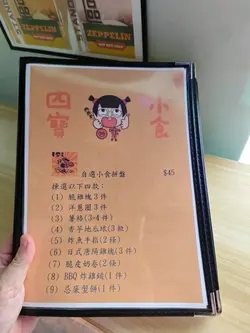 ZEPPELIN
ZEPPELIN
四寶小食
自選小食拼盤 $45
揀選以下四款:
(1) 脆雞塊3件
(2) 洋蔥圈3件
(3) 薯格(3-4件)
(4) 香芋地瓜球(3粒)
(5) 炸魚手指(2條)
(6) 日式唐揚雞塊(2件)
(7) 脆皮奶卷(2條)
(8) BBQ炸雞鎚(1件)
(9) 忌廉墨餅(1件)